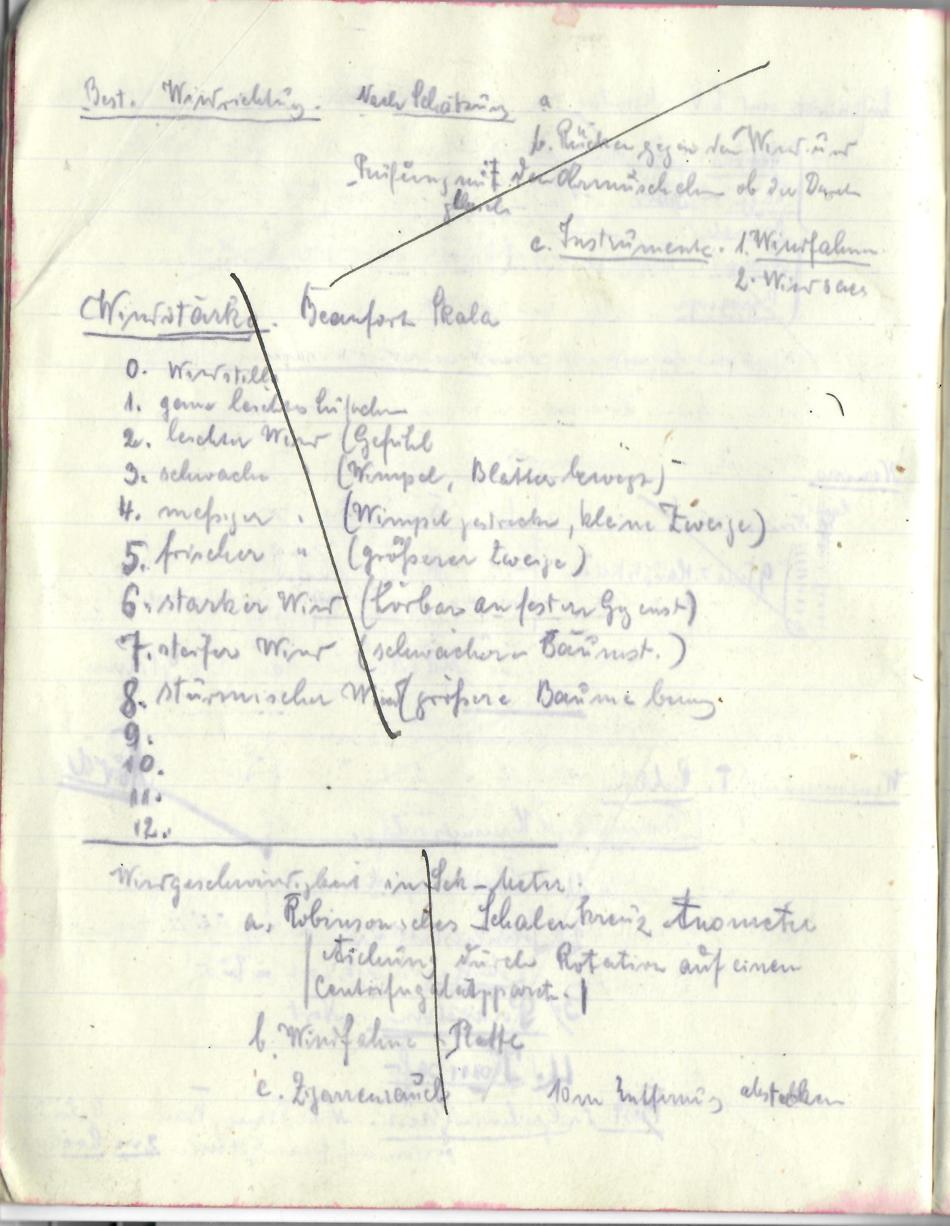 Best. Windrichtung. Nach Schätzung a.
b. Rücken gegen den Wind und
Prüfung mit den Ohrmuscheln ob der Druck
gleich
c. Instrumente. 1. Windfahne
2. Windsack
Windstärke. Beaufort Skala
0. Windstille
1. ganz leichtes Lüftchen
2. leichter Wind (Gefühl
3. schwache " (Wimpel, Blätter bewegt)
4. mäßiger " (Wimpel gestreckt, kleine Zweige)
5. frischer " (größerer Zweige)
6. starker Wind (hörbar an festen Gegenst)
7. steifer Wind (schwächere Bäumst.)
8. stürmischer Wind (größere Bäume beweg
9.
10.
11.
12.
Windgeschwindigkeit in Sek-Meter.
a. Robinsonsches Schalenkreuz Anometer
Aichung durch Rotation auf einen
Centrifugalapparat.
b. Windfahne Platte
c. Zigarrenrauch 10 m Entfernung abstecken